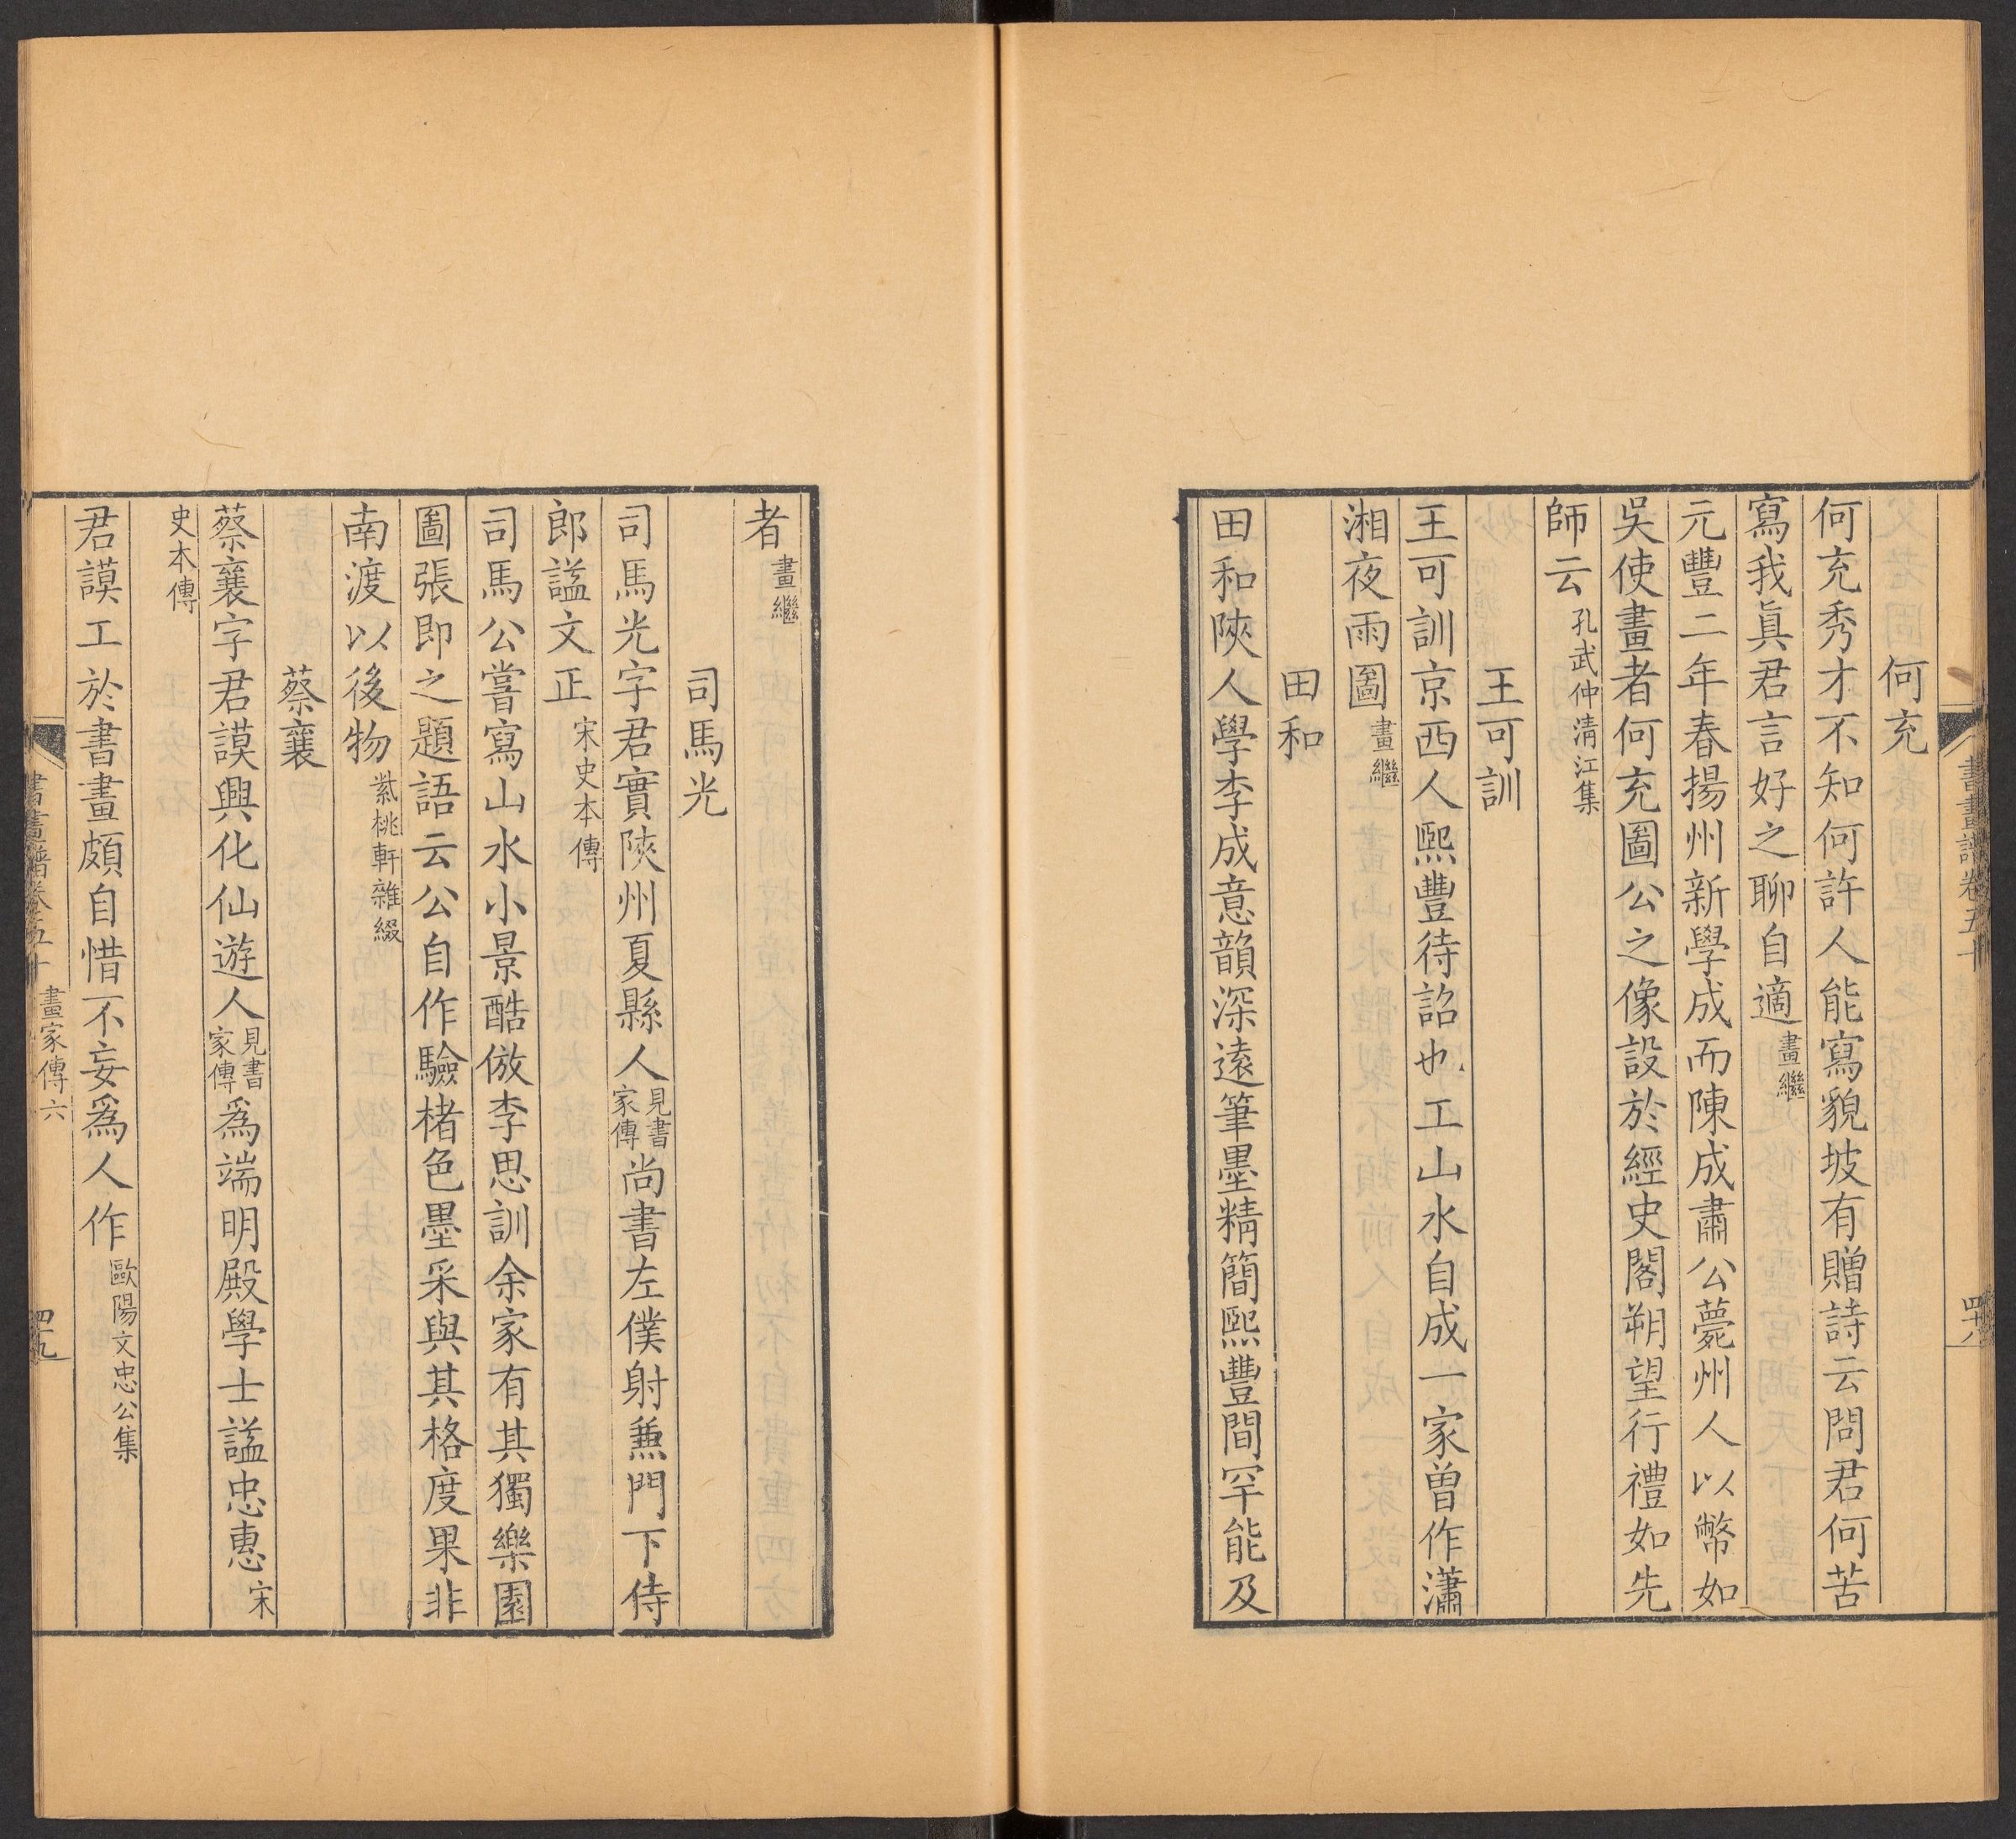 書畫譜卷五十
四十八
何充
何充秀才不知何許人能寫貌坡有贈詩云問君何苦
寫我眞君言好之聊自適畫繼
元豐二年春揚州新學成而陳成肅公薨州人以幣如
吳使畫者何充圖公之像設於經史閣朔望行禮如先
師云孔武仲清江集
王可訓
王可訓京西人熙豐待詔也工山水自成一家曾作瀟
湘夜雨圖畫繼
田和
田和陝人學李成意韻深遠筆墨精簡熙豐間罕能及
者畫繼
司馬光
司馬光字君實陝州夏縣人見書家傳尚書左僕射兼門下侍
郎謚文正宋史本傳
司馬公嘗寫山水小景酷倣李思訓余家有其獨樂園
圖張即之題語云公自作驗楮色墨采與其格度果非
南渡以後物紫桃軒雜綴
蔡襄
蔡襄字君謨興化仙遊人見書家傳爲端明殿學士謚忠惠宋
史本傳
君謨工於書畫頗自惜不妄爲人作歐陽文忠公集
書畫譜卷五十
畫家傳六
四十九